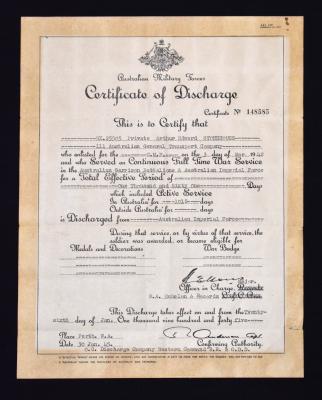 Australian Military Forces
Certificate of Discharge
Certificate No 148585
This is to Certify that
Private Arthur Edward
111 Australian General Transport Company
who enlisted for the on the 5 day of 1942
and who Served on Continuous Full Time War Service
in the Australian Garrison Battalions & Australian Imperial Force
for a Total Effective Period of
One Thousand and Sixty One Days
which included Active Service
In Australia for 1015 Days
Outside Australia for Days
is Discharged from Australian Imperial Force
During that service, or by virtue of that service, the
soldier was awarded, or became eligible for
Medals and Decorations War Badge
Officer in Charge,
W.A. Echelon & Records
This Discharge takes effect on and from the Twenty
sixth day of Jan. One thousand nine hundred and forty five
Place Perth. W.A.
Date 30 Jan. 45. Confirming Authority.
O.C. Discharge Company Western Command